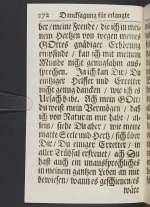 272 Dancksagung für erlangte
der / meine Feinde / die ich in mei-
nem Hertzen von wegen meines
GOttes gnädiger Erhörung
empfinde / kan ich mit meinem
Munde nicht gnungsahm aus-
sprechen. Ja ich kan Dir / Du
eintziger Helffer und Erretter
nicht genug dancken / wie ich es
Ursach habe. Ach mein GOtt /
du weist mein Vermögen / daß
ich von Natur in mir habe /
sehe Du aber / wie meine
matte Seele und Hertz / sich über
Die / Du einiger Erretter / in
aller Trübsal erfreuet / ach Du
hast auch ein unaussprechliches
in meinem gantzen Leben an mir
bewiesen / wann es geschienen es
wäre